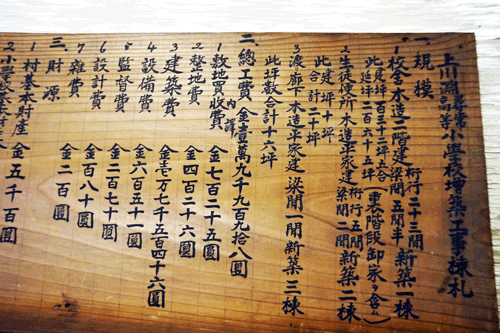 上川淵尋常高等小學校増築工事棟札
一、規模
1 校舍木造二階建 桁行二十三間 梁間五間半 新築一棟
此建坪百三十二坪五合
延坪二百六十五坪 (東階段卸家ヲ含ム)
2 生徒便所木造平家建 桁行五間 梁間二間 新築二棟
此建坪十坪
合計二十坪
3 渡廊下木造平家建 梁間一間 新築三棟
此坪數合計十六坪
二、總工費 金貳萬九千九百九拾八圓
内譯
1 敷地買收費 金七百二十五圓
2 整地費 金四百二十六圓
3 建築費 金壱万七千五百四十六圓
4 設備費 金六百五十一圓
5 監督費 金二百七十圓
6 設計費 金百八十圓
7 雜費 金二百圓
三、財源
1 村基本財産 金五千百圓
2 小學校基本財産